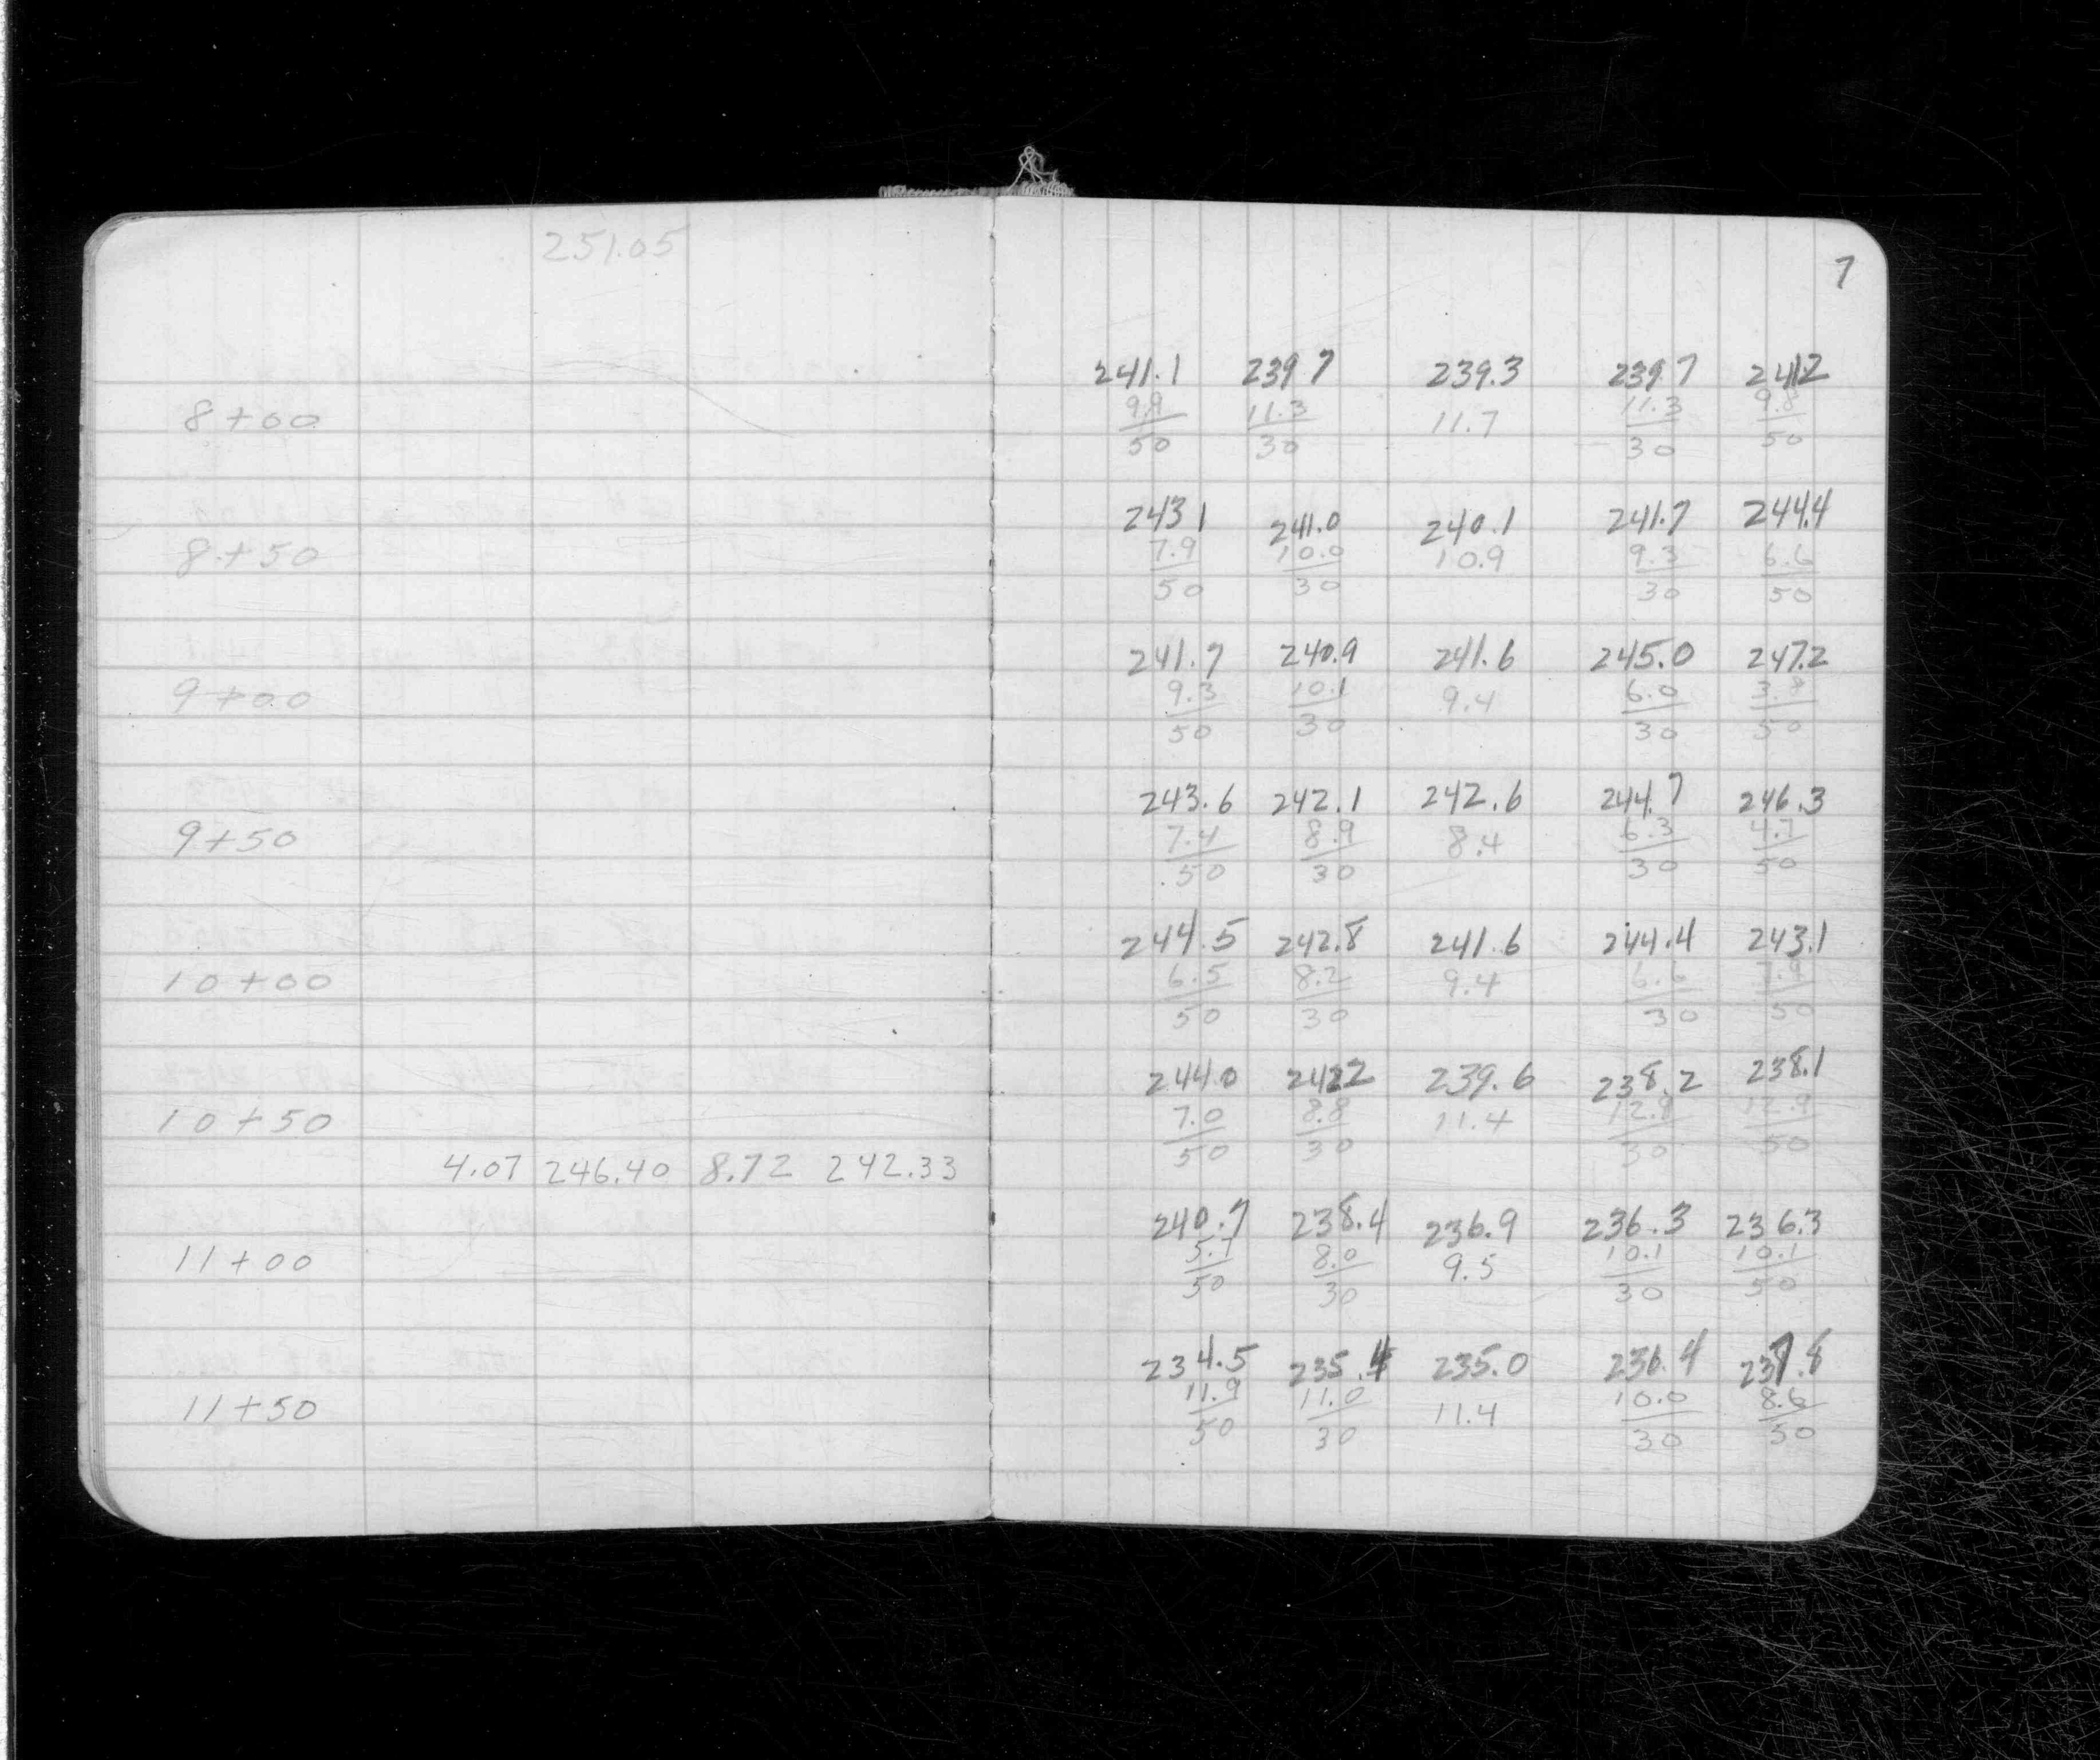 251.05
7
241.1 239 7 239.3 239.7 241.2
8+00 9.9 11.3 11.7 11.3 9.8
50 30 30 50
243 1 241.0 240.1 241.7 244.4
8+50 7.9 10.0 10.9 9.3 6.6
50 30 30 50
241.7 240.9 241.6 245.0 247.2
9+00 9.3 10.1 9.4 6.0 3.8
50 30 30 50
243.6 242.1 242.6 244.7 246.3
9+50 7.4 8.9 8.4 6.3 4.7
50 30 30 50
244.5 242.8 241.6 244.4 243.1
10+00 6.5 8.2 9.4 6.6 7.9
50 30 30 50
244.0 242.2 239.6 238.2 238.1
10+50 7.0 8.8 11.4 12.8 12.9
50 30 30 50
4.07 246.40 8.72 242.33
240.7 238.4 236.9 236.3 236.3
11+00 5.7 8.0 9.5 10.1 10.1
50 30 30 50
234.5 235.4 235.0 236.4 237.8
11+50 11.9 11.0 11.4 10.0 8.6
50 30 30 50